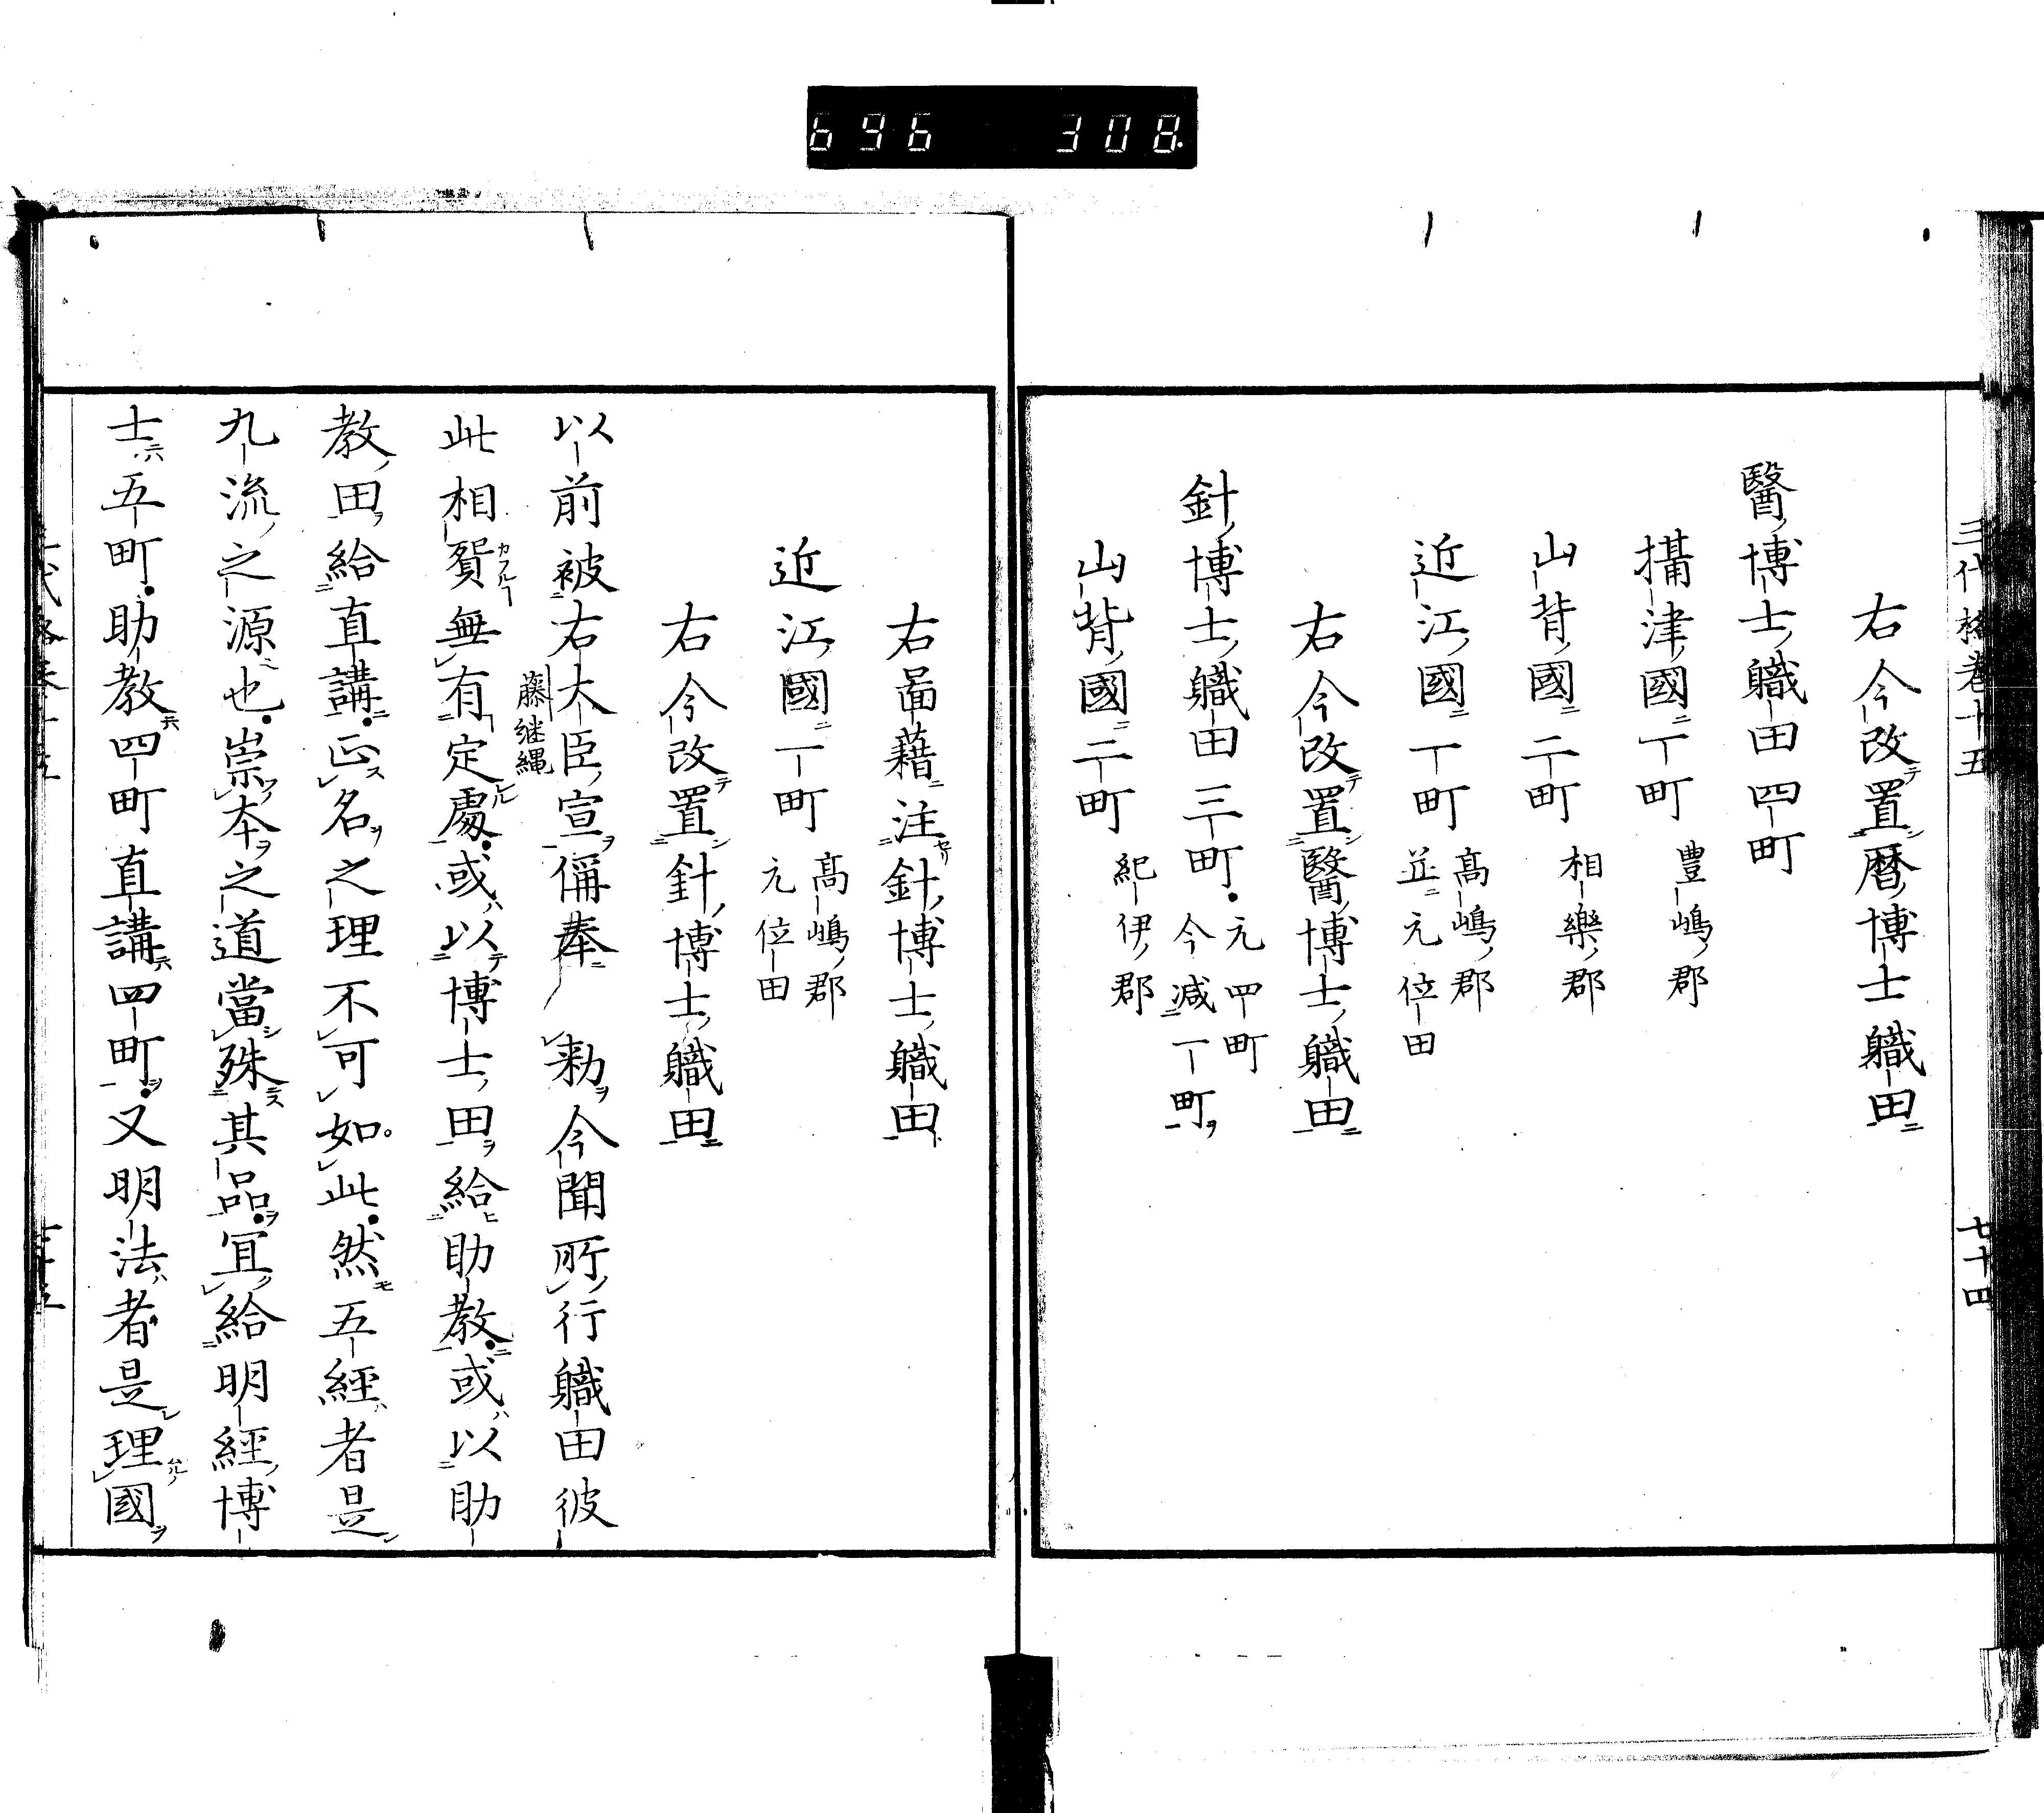 696 308
三代格卷十五 七十四
右今改置暦博士軄田
醫博士軄田四町
攝津國一町 豊嶋郡
山背國二町 相樂郡
近江國一町 高嶋郡 並元位田
右今改置醫博士軄田
針博士軄田三町 元四町 今減一町
山背國二町 紀伊郡
右啚藉注針博士軄田
近江國一町 高嶋郡 元位田
右今改置針博士軄田
以前被右大臣宣偁奉 勅今聞所行軄田彼
藤継縄
此相貿無有定處或以博士田給助教或以助
教田給直講正名之理不可如此然五經者是
九流之源也崇本之道當殊其品宜給明經博
士五町助教四町直講四町又明法者是理國